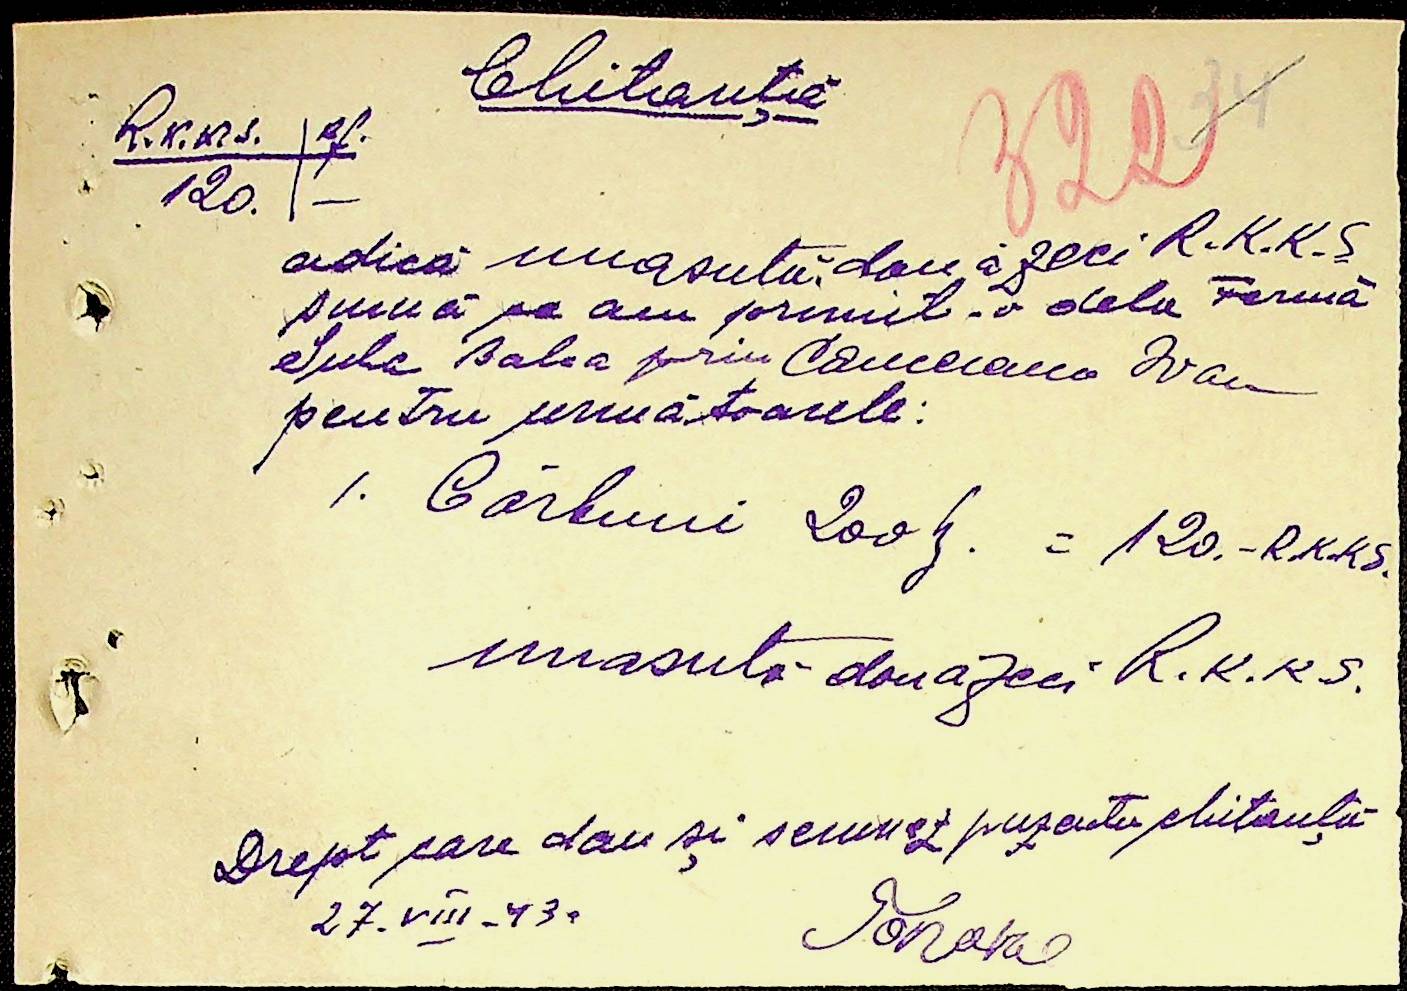 Chitanță
322 34
R.K.KS. | pf.
120. | —
adică unasută douăzeci R.K.K.S
sumă ce am primit-o dela Fermă
prin Ivan
pentru următoarele:
1. Cărbuni 200 = 120.- R.K.KS.
unasută douăzeci R.K.K S.
Drept care dau și semnez prezenta chitanță
27-VIII-43.